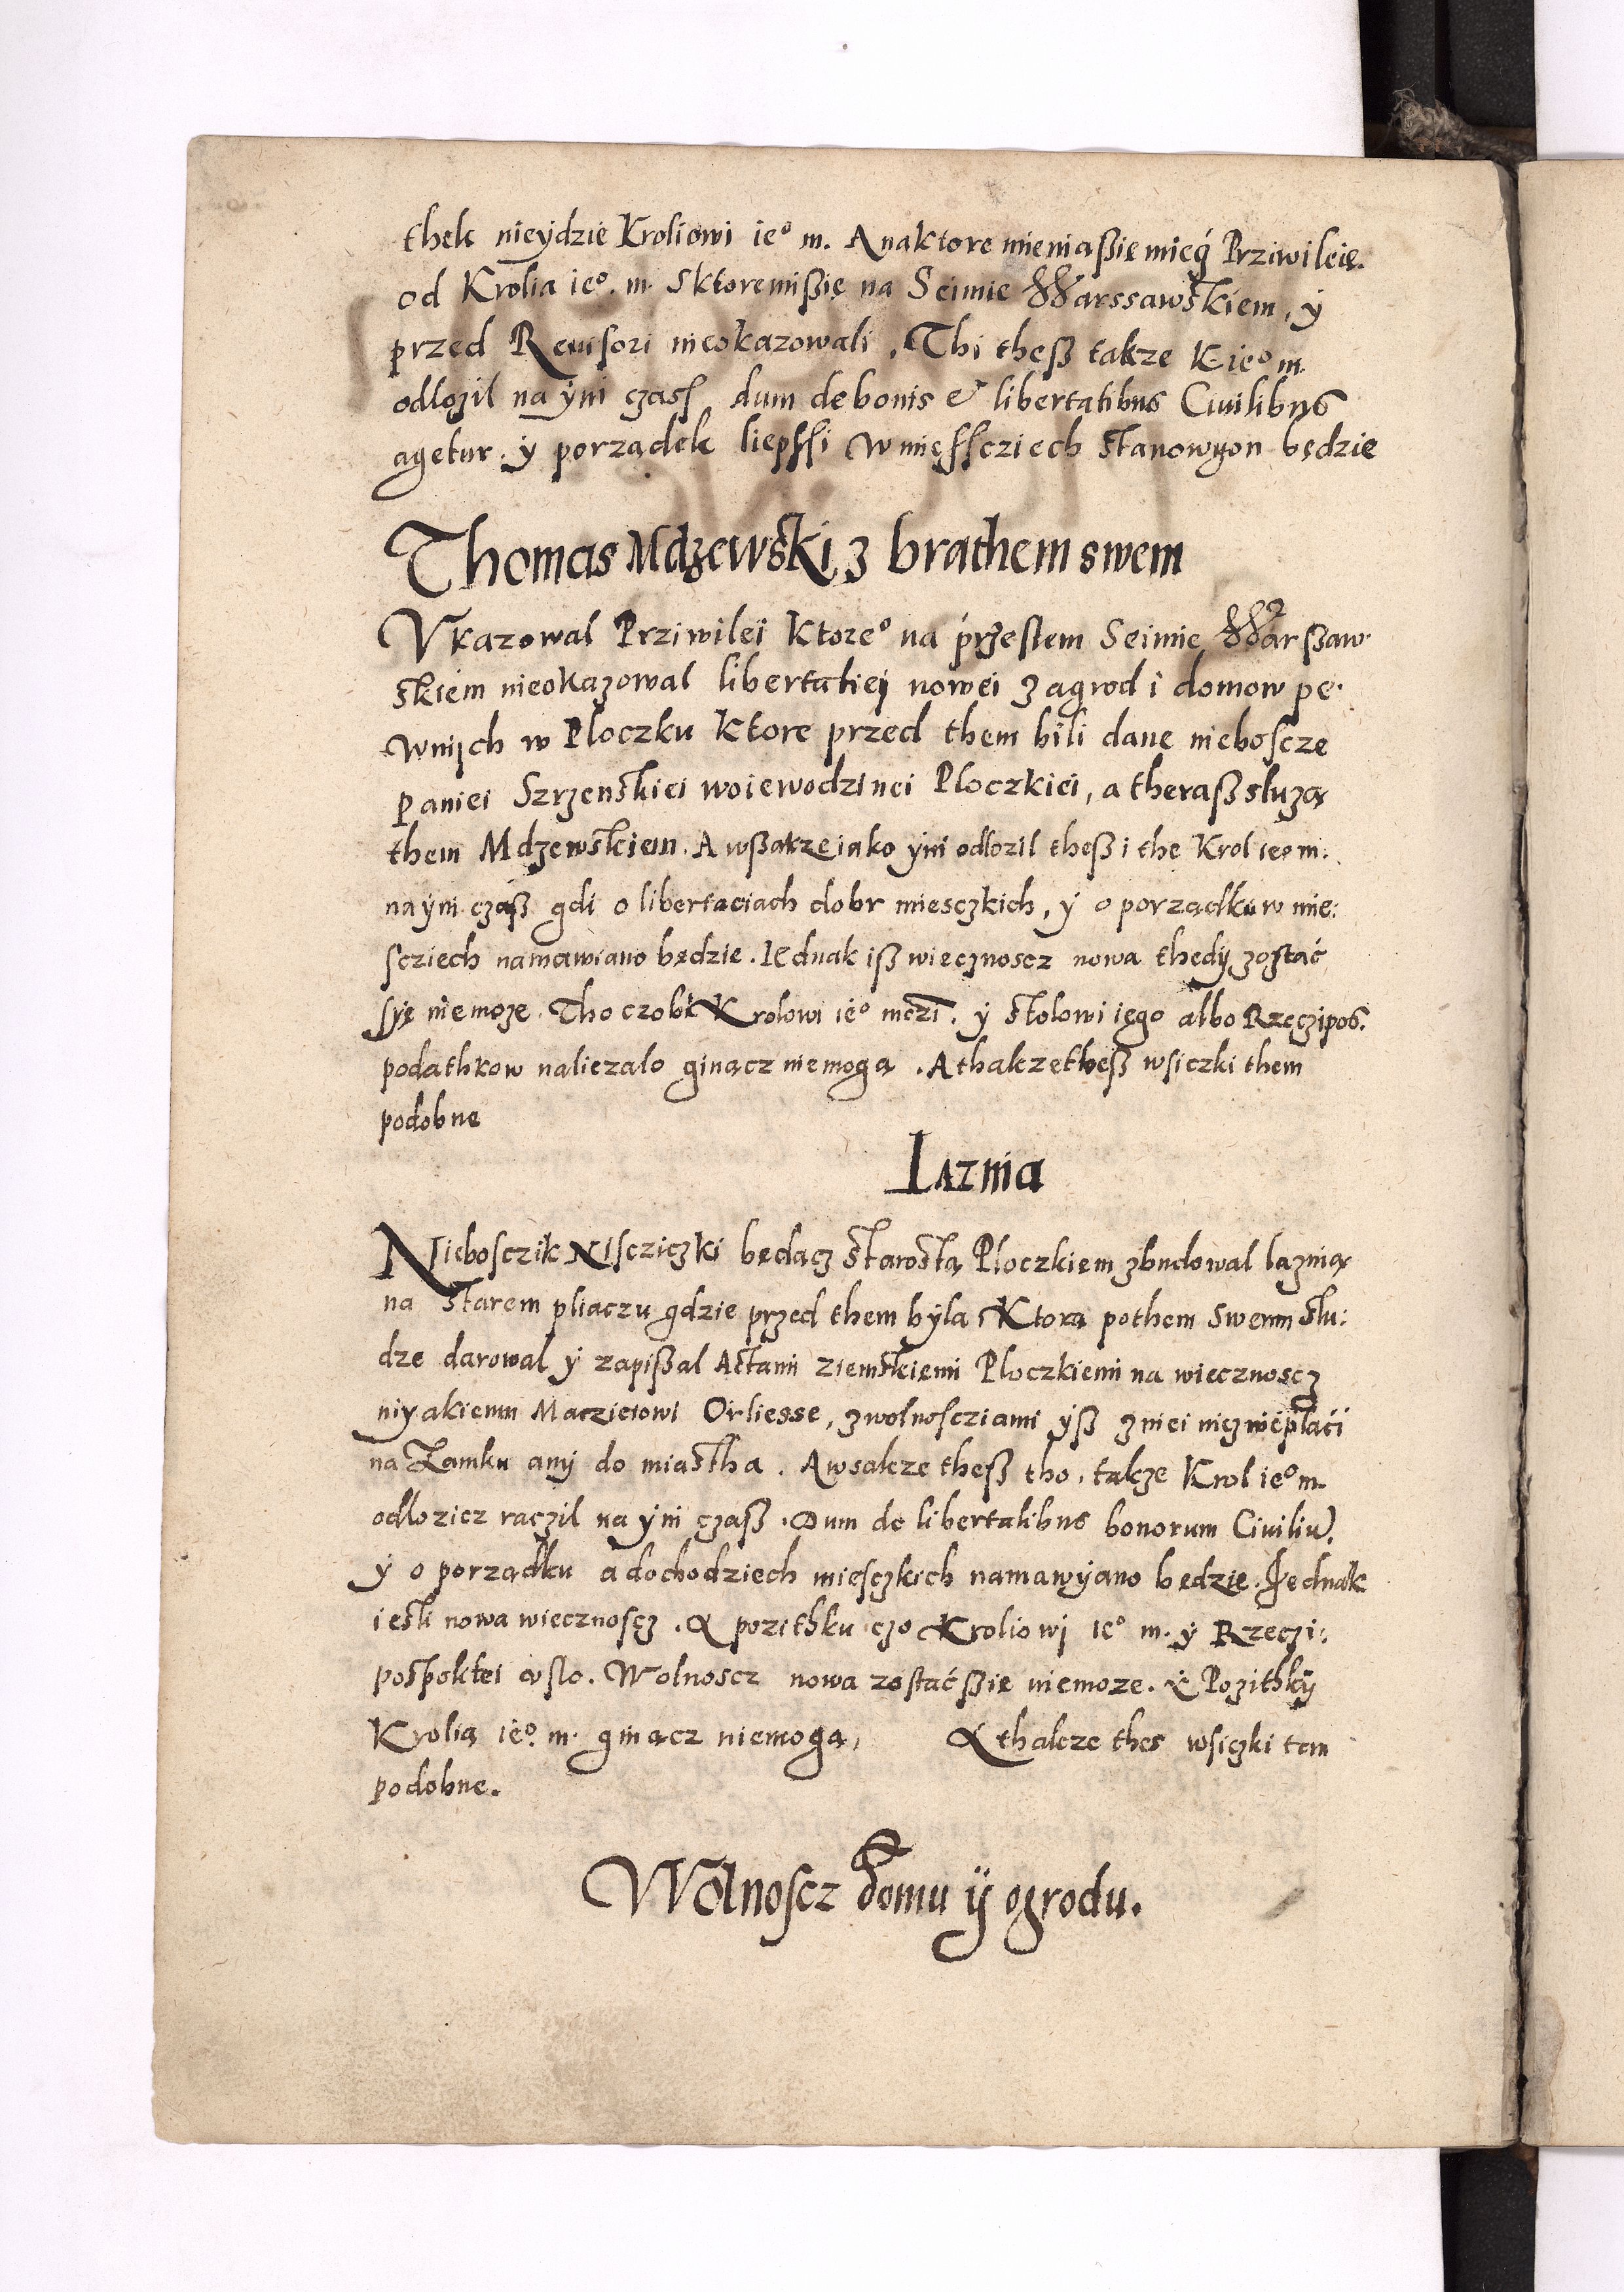 thek nieÿdzie Kroliowi ie° m. A naktore mieniaßię mieć Prziwileię.
od Krolia ie°. m. Sktoremißię na Seimie Warssawskiem, ÿ
przed Rewisori nieokazowali, Thi theß takze K. ie° m.
odlozil na ÿni czass, dum de bonis et libertatibus Ciuilibus
agetur. ÿ porządek liepssi w miessciech stanowyon będzie
Thomas Mdzewski z brathem swem
Vkazowal Prziwilei ktore° na przestem Seimie Warßaw-
skiem nieokazowal libertatiej nowei zagrod i domow pe-
wnijch w Ploczku ktore przed them bili dane niebosczę
Paniei Szrzenskiei woiewodzinei Ploczkiei, a theraß sluzą
them Mdzewskiem. A wßakze iako ÿni odlozil theß i the Krol ieo m.
na ÿni czáß gdi o libertaciach dobr miesczkich, ÿ o porządku w mie:
sciech namawiano będzie. IEdnak iß wiecznoscz nowa thedÿ zostać
sÿę niemoze. Tho czobi Krolowi ie° mczi. ÿ stolowi iego albo Rzeczipos.
podathkow naliezalo ginącz niemogą. A thakze theß wsiczki them
podobne
Laznia
Niebosczik Nisciczki będącz Starostą Ploczkiem zbudowal laznią
na starem pliaczu gdzie przed them bÿla Ktorą pothem swemu slu:
dze darowal ÿ zapißal Actami ziemskiemi Ploczkiemi na wiecznoscz
niyakiemu Macieiowi Orliesse, z wolnosciami ÿß z niei nicz nieplaći
na Zamku anÿ do miastha. A wsakze theß tho, takze Krol ie° m.
odlozicz raczil na ÿni czaß. Dum de libertatibus bonorum Ciuiliu,
ÿ o porządku a dochodziech miesczkich namawÿano będzie. Jednak
iesli nowa wiecznoscz. A pozithku czo Kroliowi ie° m. ÿ Rzeczi:
pospoltei szlo. Wolnoscz nowa zostać ßię niemoze. A Pozithkÿ
Krolia ie°. m. ginącz niemogą, A thakze thes wsiczki tem
podobne.
Wolnoscz domu ÿ ogrodu.